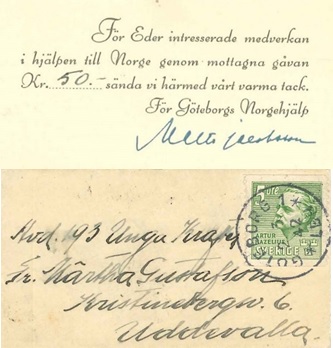 För Eder intresserade medverkan
i hjälpen till Norge genom mottagna gåvan
Kr. 50.- sända vi härmed vårt varma tack.
För Göteborgs Norgehjälp
5 ÖRE
ARTUR
HAZELIUS
SVERIGE
Avd. 193 Unga
Fr. Märtha Gustafson
Kristinebergv. 6.
Uddevalla.